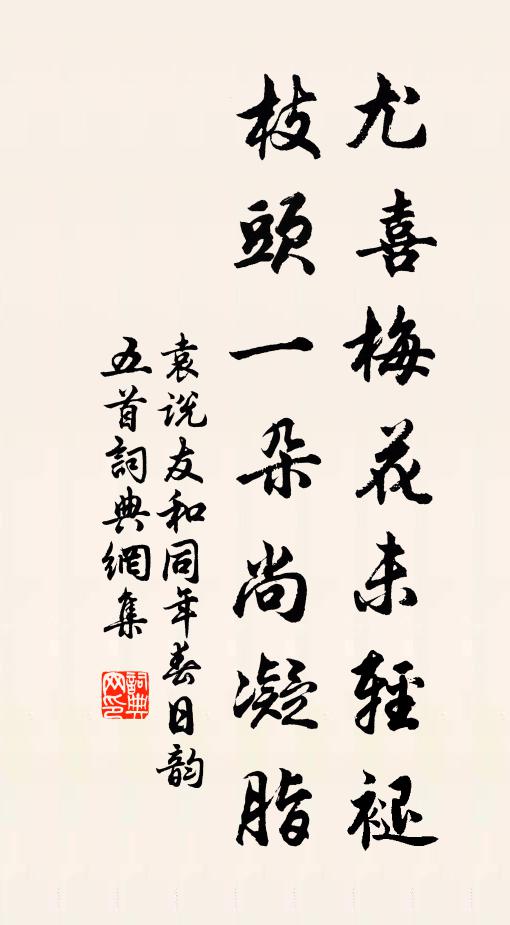 尤喜梅花未輕褪
枝頭一朵尚凝脂
袁说友和同年春日韵
五首詞典網集
詞典网印